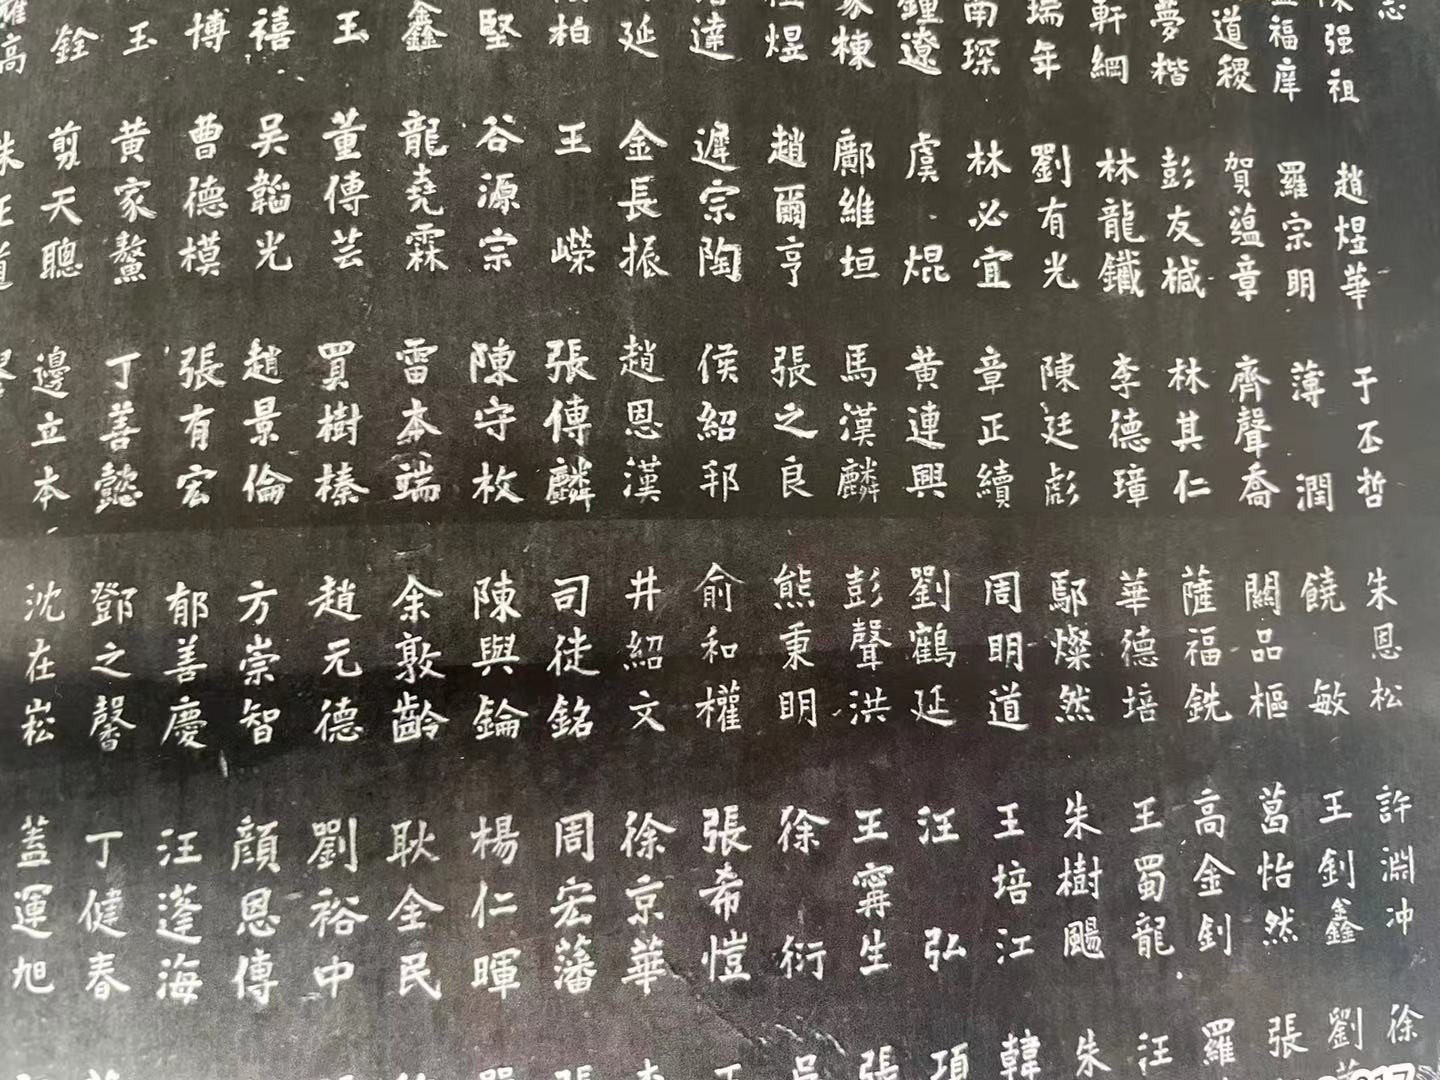 志 强祖 福庠 道稷 夢楷 軒綱 瑞年 南琛 鍾遼 家棟 煜 達 延 柏 堅 鑫 玉 禧 博 玉 銓 高
趙煜華 羅宗明 賀蘊章 彭友椷 林龍鐵 劉有光 林必宜 虞焜 鄺維垣 趙爾亨 遲宗陶 金長振 王嶸 谷源宗 龍堯霖 董傅芸 吴韜光 曹德模 黄家驁 剪天聰
于丕哲 薄潤 齊聲喬 林其仁 李德璋 陳廷彪 章正續 黄連興 馬漢麟 張之良 侯紹邦 趙恩漢 張傅麟 陳守枚 雷本端 買樹榛 趙景倫 張有宏 丁善懿 邊立本
朱恩松 饒敏 闕品樞 薩福銑 華德培 鄢燦然 周明道 劉鶴延 彭聲洪 熊秉明 俞和權 井紹文 司徒銘 陳與錀 余敦齡 趙元德 方崇智 郁善慶 鄧之馨 沈在崧
許淵冲 王釗鑫 葛怡然 高金釗 王蜀龍 朱樹颺 王培江 汪弘 王甯生 徐衍 張希愷 徐京華 周宏藩 楊仁暉 耿全民 劉裕中 顔恩傳 汪蓬海 丁健春 蓋運旭
徐 劉 張 羅 汪 朱 韓 項 張 吴